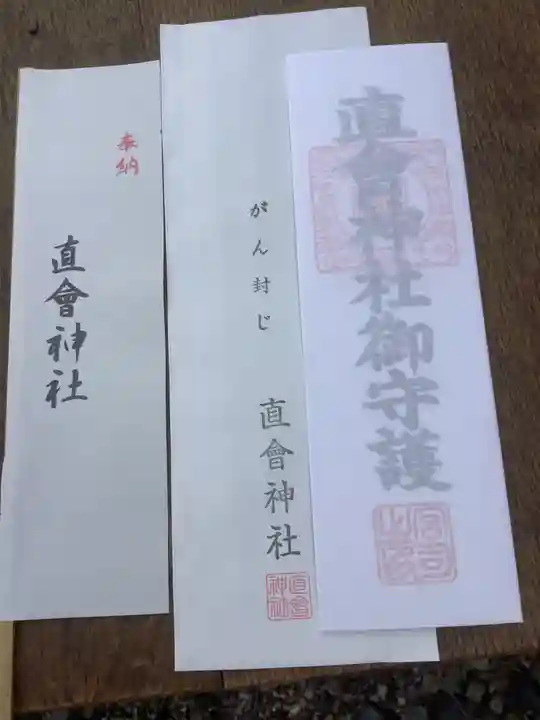 奉納
直會神社
がん封じ
直會神社
直會神社
直會神社御守護